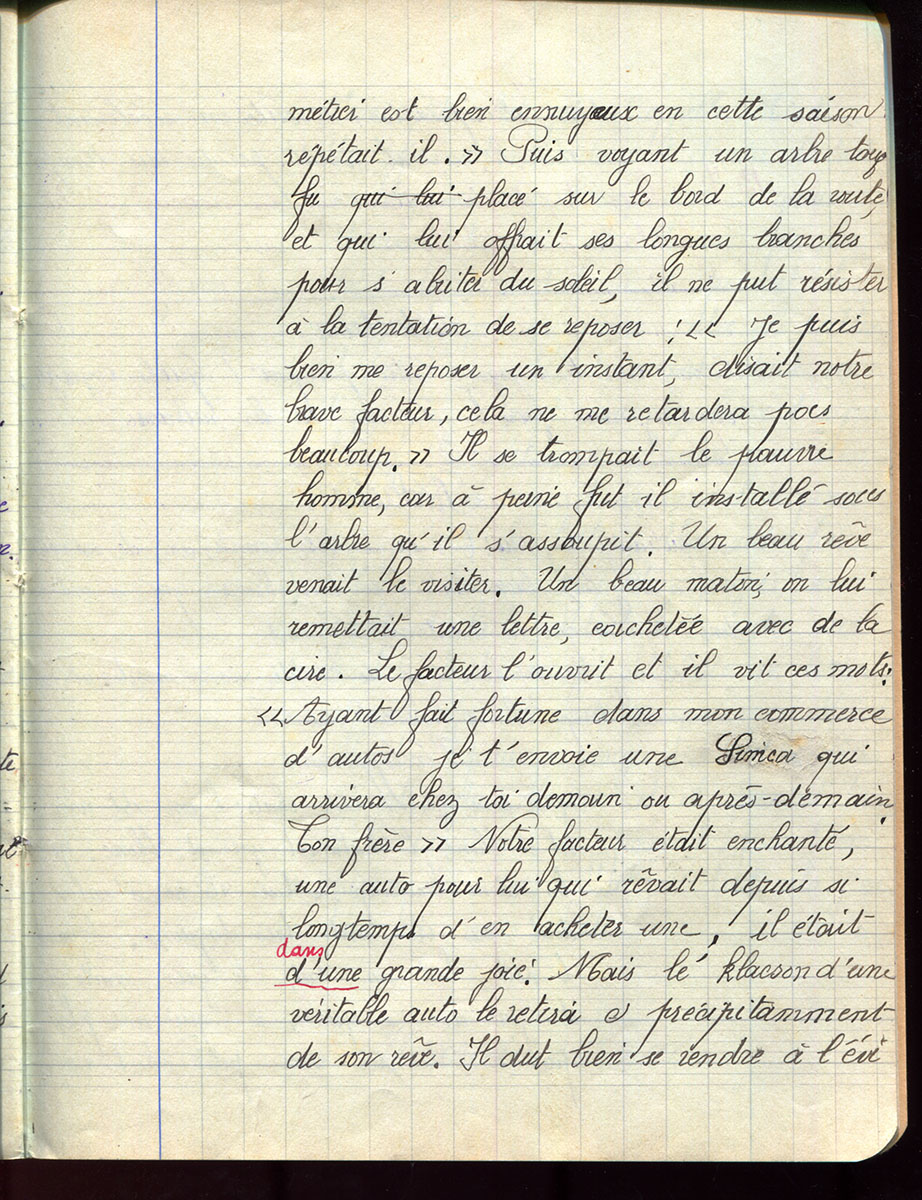 métier est bien ennuyeux en cette saison
répétait-il. » Puis voyant un arbre touf
fu qui lui placé sur le bord de la route,
et qui lui offrait ses longues branches
pour s'abriter du soleil, il ne put résister
à la tentation de se reposer ! « Je puis
bien me reposer un instant, disait notre
brave facteur, cela ne me retardera pas
beaucoup. » Il se trompait le pauvre
homme, car à peine fut il installé sous
l'arbre qu'il s'assoupit. Un beau rêve
venait le visiter. Un beau matin, on lui
remettait une lettre, cachetée avec de la
cire. Le facteur l'ouvrit et il vit ces mots:
« Ayant fait fortune dans mon commerce
d'autos je t'envoie une Simca qui
arrivera chez toi demain ou après-demain.
Ton frère » Notre facteur était enchanté,
une auto pour lui qui rêvait depuis si
longtemps d'en acheter une, il était
dans
d'une grande joie. Mais le klacson d'une
véritable auto le retira précipitamment
de son rêve. Il dut bien se rendre à l'évi